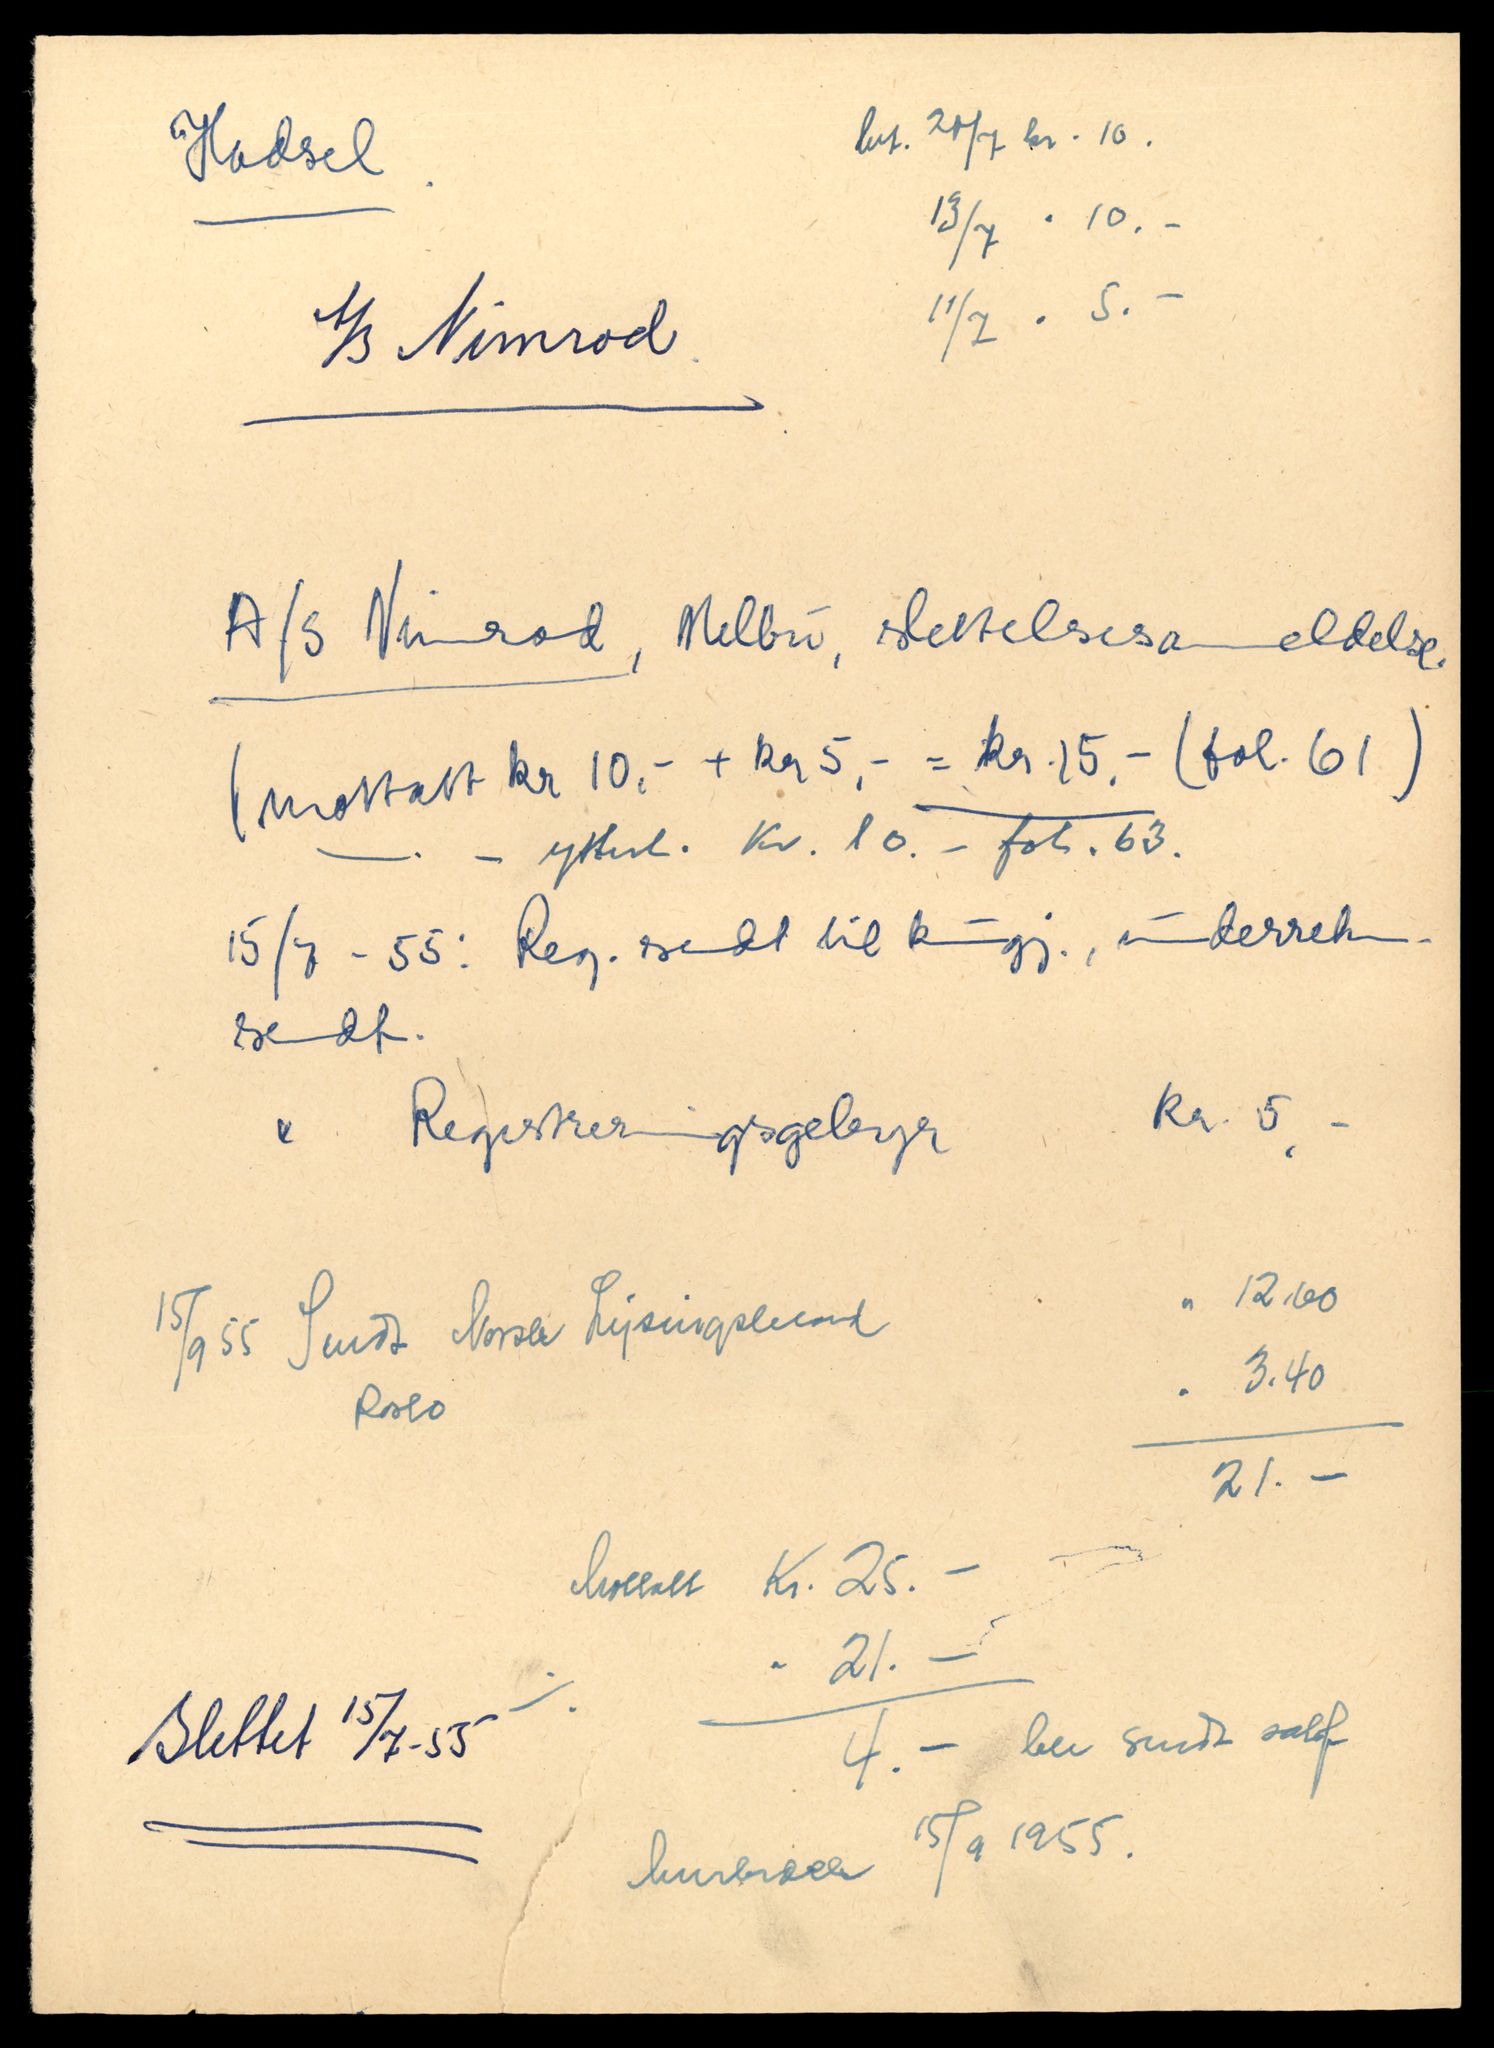 Hadsel.
int. 20/7 kr. 10.
13/7 . 10.-
11/7 . 5.-
A/S Nimrod.
A/S Nimrod, Melbu, slettelsesanmeldelse.
(mottatt kr 10.- + kr 5,- = kr. 15.- (fol. 61)
— . — ytterl. Kr. 10.- fol. 63.
15/7-55: Reg. sendt til kungj., underretn.
sendt.
" Registreringsgebyr kr. 5,-
15/9 55 Sendt Norsk Lysingsblad " 12.60
Porto . 3.40
21.-
Mottatt Kr. 25.-
" 21.-
4.- ble sendt
15/9 1955.
Slettet 15/7-55